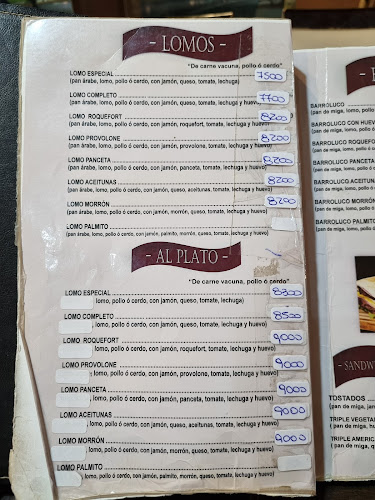 - LOMOS -
"De carne vacuna, pollo ó cerdo"
LOMO ESPECIAL 7500
(pan árabe, lomo, pollo ó cerdo, con jamón, queso, tomate, lechuga)
LOMO COMPLETO 7700
(pan árabe, lomo, pollo ó cerdo, con jamón, queso, tomate, lechuga y huevo)
LOMO ROQUEFORT 8200
(pan árabe, lomo, pollo ó cerdo, con jamón, roquefort, tomate, lechuga y huevo)
LOMO PROVOLONE 8200
(pan árabe, lomo, pollo ó cerdo, con jamón, provolone, tomate, lechuga y huevo)
LOMO PANCETA 8200
(pan árabe, lomo, pollo ó cerdo, con jamón, panceta, tomate, lechuga y huevo)
LOMO ACEITUNAS 8200
(pan árabe, lomo, pollo ó cerdo, con jamón, queso, aceitunas, tomate, lechuga y huevo)
LOMO MORRÓN 8200
(pan árabe, lomo, pollo ó cerdo, con jamón, morrón, queso, tomate, lechuga y huevo)
LOMO PALMITO
(pan árabe, lomo, pollo ó cerdo, con jamón, palmito, morrón, queso, tomate, lechuga y huevo)
- AL PLATO -
"De carne vacuna, pollo ó cerdo"
LOMO ESPECIAL 8300
, lomo, pollo ó cerdo, con jamón, queso, tomate, lechuga)
LOMO COMPLETO 8500
, lomo, pollo ó cerdo, con jamón, queso, tomate, lechuga y huevo)
LOMO ROQUEFORT 9000
, lomo, pollo ó cerdo, con jamón, roquefort, tomate, lechuga y huevo)
LOMO PROVOLONE 9000
, lomo, pollo ó cerdo, con jamón, provolone, tomate, lechuga y huevo)
LOMO PANCETA 9000
, lomo, pollo ó cerdo, con jamón, panceta, tomate, lechuga y huevo)
LOMO ACEITUNAS 9000
, lomo, pollo ó cerdo, con jamón, queso, aceitunas, tomate, lechuga y huevo)
LOMO MORRÓN 9000
, lomo, pollo ó cerdo, con jamón, morrón, queso, tomate, lechuga y huevo)
LOMO PALMITO
, lomo, pollo ó cerdo, con jamón, palmito, morrón, queso, tomate, lechuga y huevo)
BARROLUCO
(pan de miga, lomo, po
BARROLUCO CON HUEV
(pan de miga, lomo, pollo
BARROLUCO ROQUEFO
(pan de miga, lomo, pollo
BARROLUCO PANCETA
(pan de miga, lomo, pollo
BARROLUCO ACEITUNA
(pan de miga, lomo, pollo
BARROLUCO MORRÓN
(pan de miga, lomo, pollo
BARROLUCO PALMITO
(pan de miga, lomo, pollo
- SANDW
TOSTADOS
( pan de miga, jam
TRIPLE VEGETA
( pan de miga,
TRIPLE AMERICA
( pan de miga,